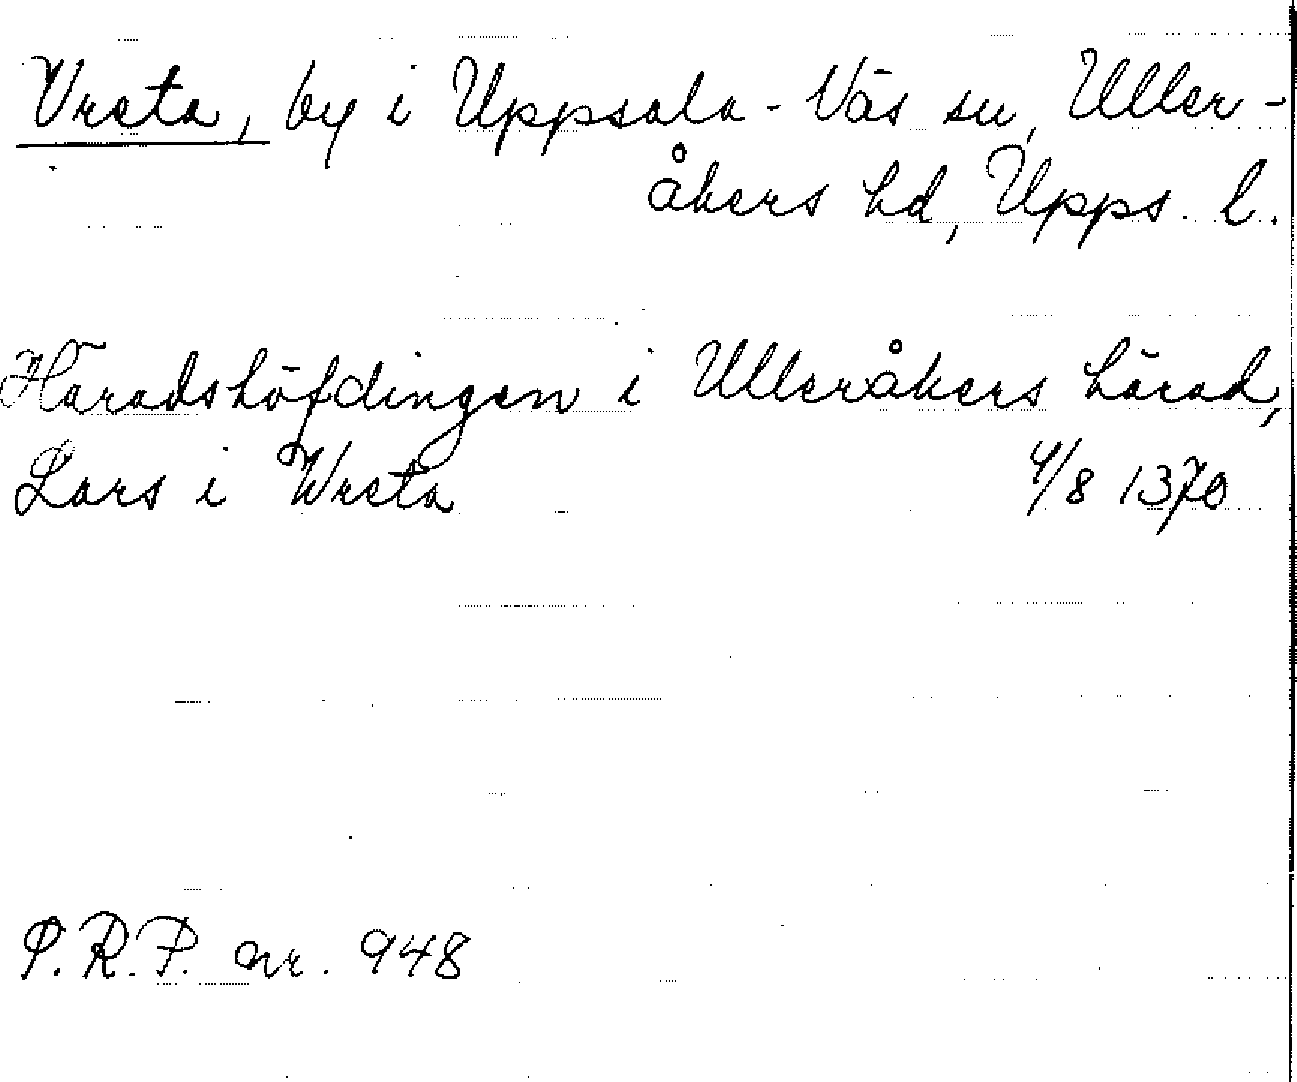 Vreta, by i Uppsala-Näs sn, Uller-
åkers hd, Upps. l.
Häradshöfdingen i Ulleråkers härad,
Lars i Wreta 4/8 1370
S.R.P. nr. 948